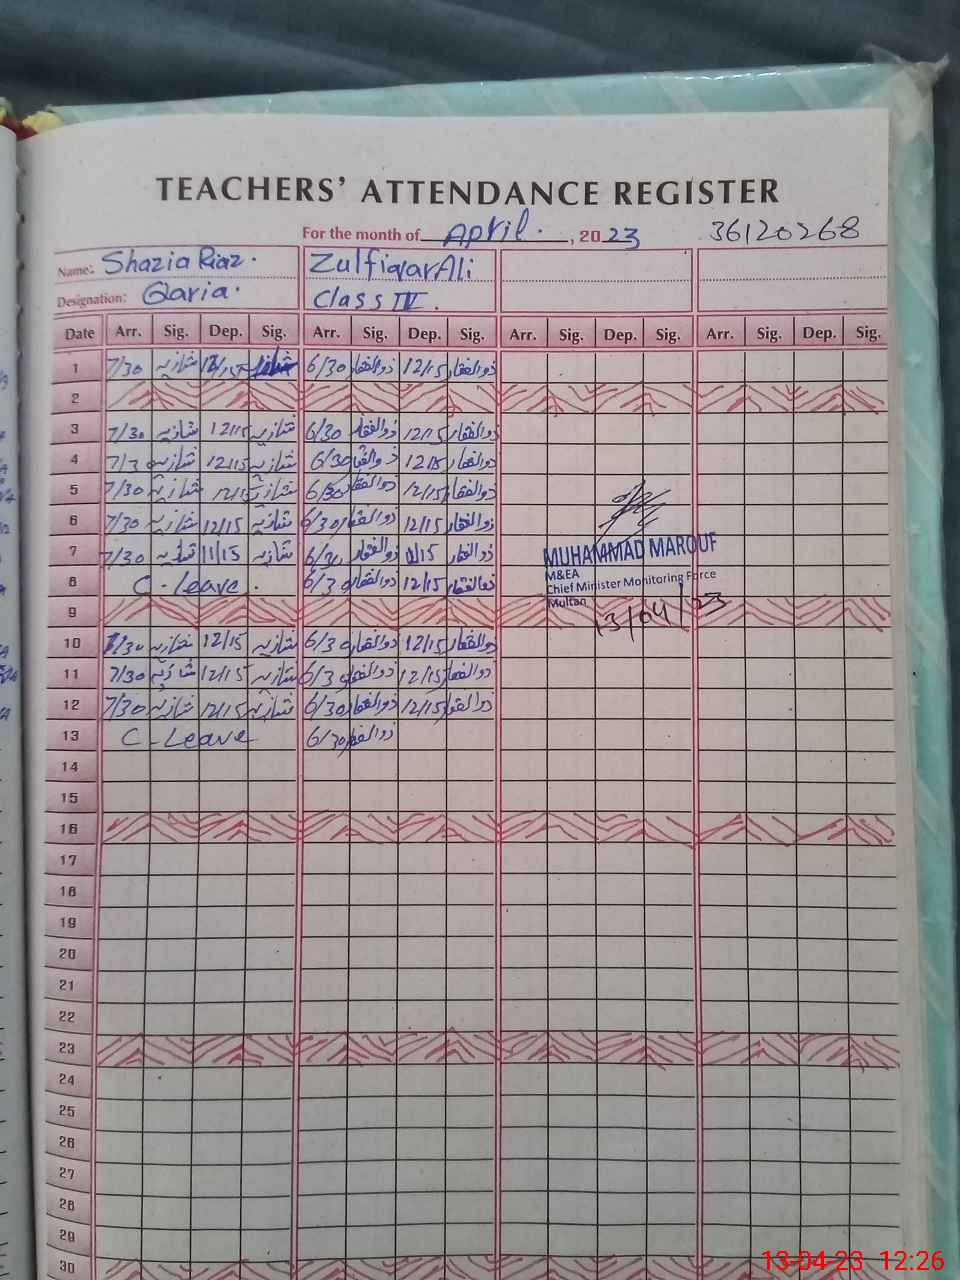 TEACHERS' ATTENDANCE REGISTER
For the month of April. , 20 23 36120268
Name: Shazia Riaz. Zulfiqar Ali
Designation: Qaria. Class IV.
Date Arr. Sig. Dep. Sig. Arr. Sig. Dep. Sig. Arr. Sig. Dep. Sig. Arr. Sig. Dep. Sig.
1 7/30 شازیہ 12/15 شازیہ 6/30 ذوالفقار 12/15 ذوالفقار
2
3 7/30 شازیہ 12/15 شازیہ 6/30 ذوالفقار 12/15 ذوالفقار
4 7/3 شازیہ 12/15 شازیہ 6/30 ذوالفقار 12/15 ذوالفقار
5 7/30 شازیہ 12/15 شازیہ 6/30 ذوالفقار 12/15 ذوالفقار
6 7/30 شازیہ 12/15 شازیہ 6/30 ذوالفقار 12/15 ذوالفقار
7 7/30 شازیہ 11/15 شازیہ 6/30 ذوالفقار 11/15 ذوالفقار
8 C-Leave. 6/30 ذوالفقار 12/15 ذوالفقار
MUHAMMAD MAROUF
M&EA
Chief Minister Monitoring Force
Multan
13/04/23
9
10 7/30 شازیہ 12/15 شازیہ 6/30 ذوالفقار 12/15 ذوالفقار
11 7/30 شازیہ 12/15 شازیہ 6/30 ذوالفقار 12/15 ذوالفقار
12 7/30 شازیہ 12/15 شازیہ 6/30 ذوالفقار 12/15 ذوالفقار
13 C-Leave 6/30 ذوالفقار
14
15
16
17
18
19
20
21
22
23
24
25
26
27
28
29
30
13-04-23 12:26